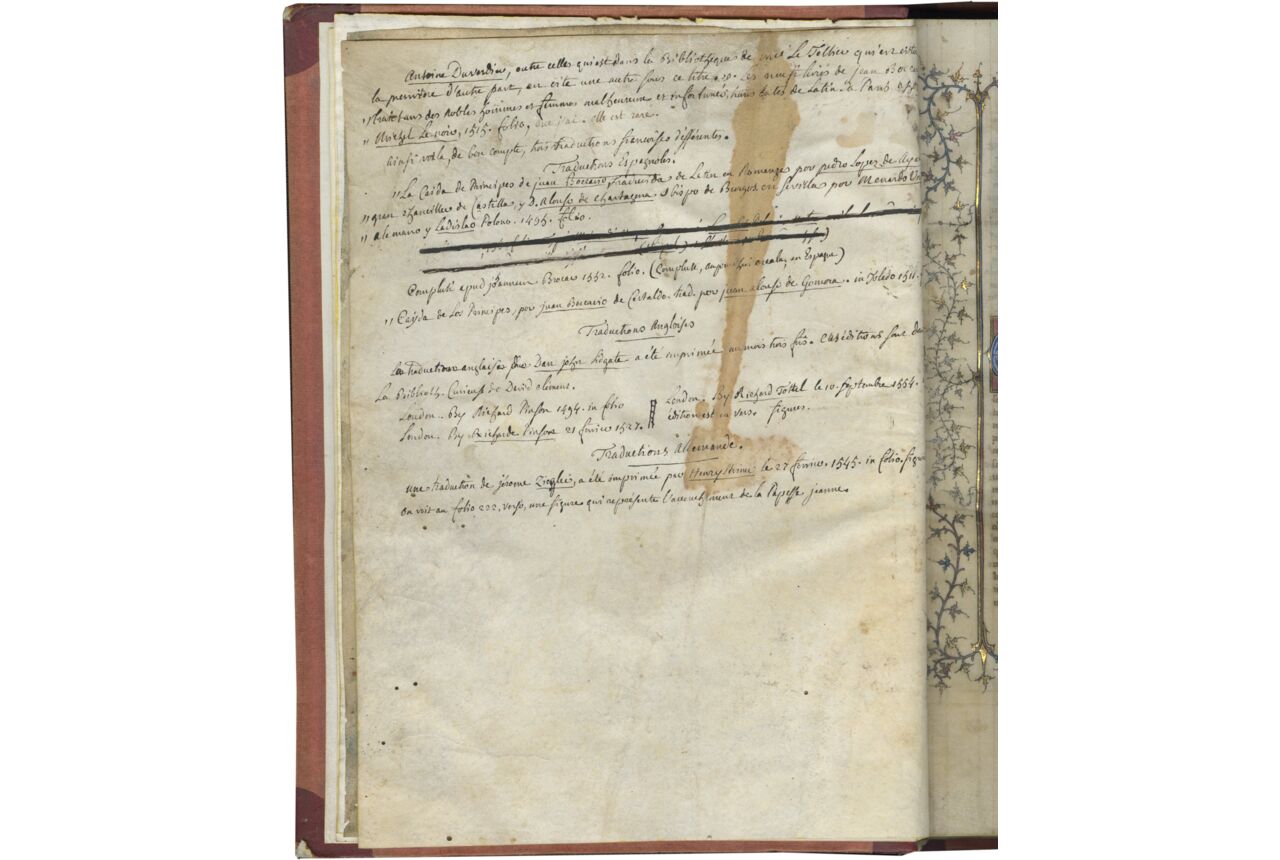 Antoine Duverdier, outre celles qui est dans la Bibliotheque de Le Tellier qu'en cite
la premiere d'autre part, en cite une autre sous ce titre. Les neuf livres de jean Boccace
"traitans des nobles hommes et femmes malheureux et infortunés, traduits de Latin. a Paris
" Michel Le noir, 1515. folio, elle est rare.
ainsi voila, de bon compte, trois traductions françoises differentes.
Traductions Espagnoles.
"La Caida de Principes de juan Boccacio, Traduzida de Latin en Romance por pedro Lopez de Ayala
"gran Chanciller de Castilla, y D. Alonso de Chartagena Obispo de Burgos, en Sevilla por Menardo
" Alemano y Ladislao Polono. 1495. folio.
Compluti apud joannem Brocar 1552. folio. (Complute, aujourd'hui Alcala, en Espagne)
" Cayda de Los Principes, por juan Boccacio de Certaldo. trad. por juan Alonso de Gomora. in Toledo 1511.
Traductions Angloises
La traduction anglaise de Dan john Lidgate a été imprimée au mois trois fois. Ces éditions sont dans
La Biblioth. Curieuse de David clement.
London. By Richard Pinson 1494. in folio
London. By Richarde Pinson 21 fevrier 1527.
London. By Richard Tottel le 10. Septembre 1554.
édition est en vers. figures.
Traductions Allemande.
une traduction de jérome Ziegler, a été imprimée par Henry Steiner le 27 fevrier. 1545. in folio. figur
on voit au folio 222, verso, une figure qui représente l'accouchement de la Papesse jeanne.